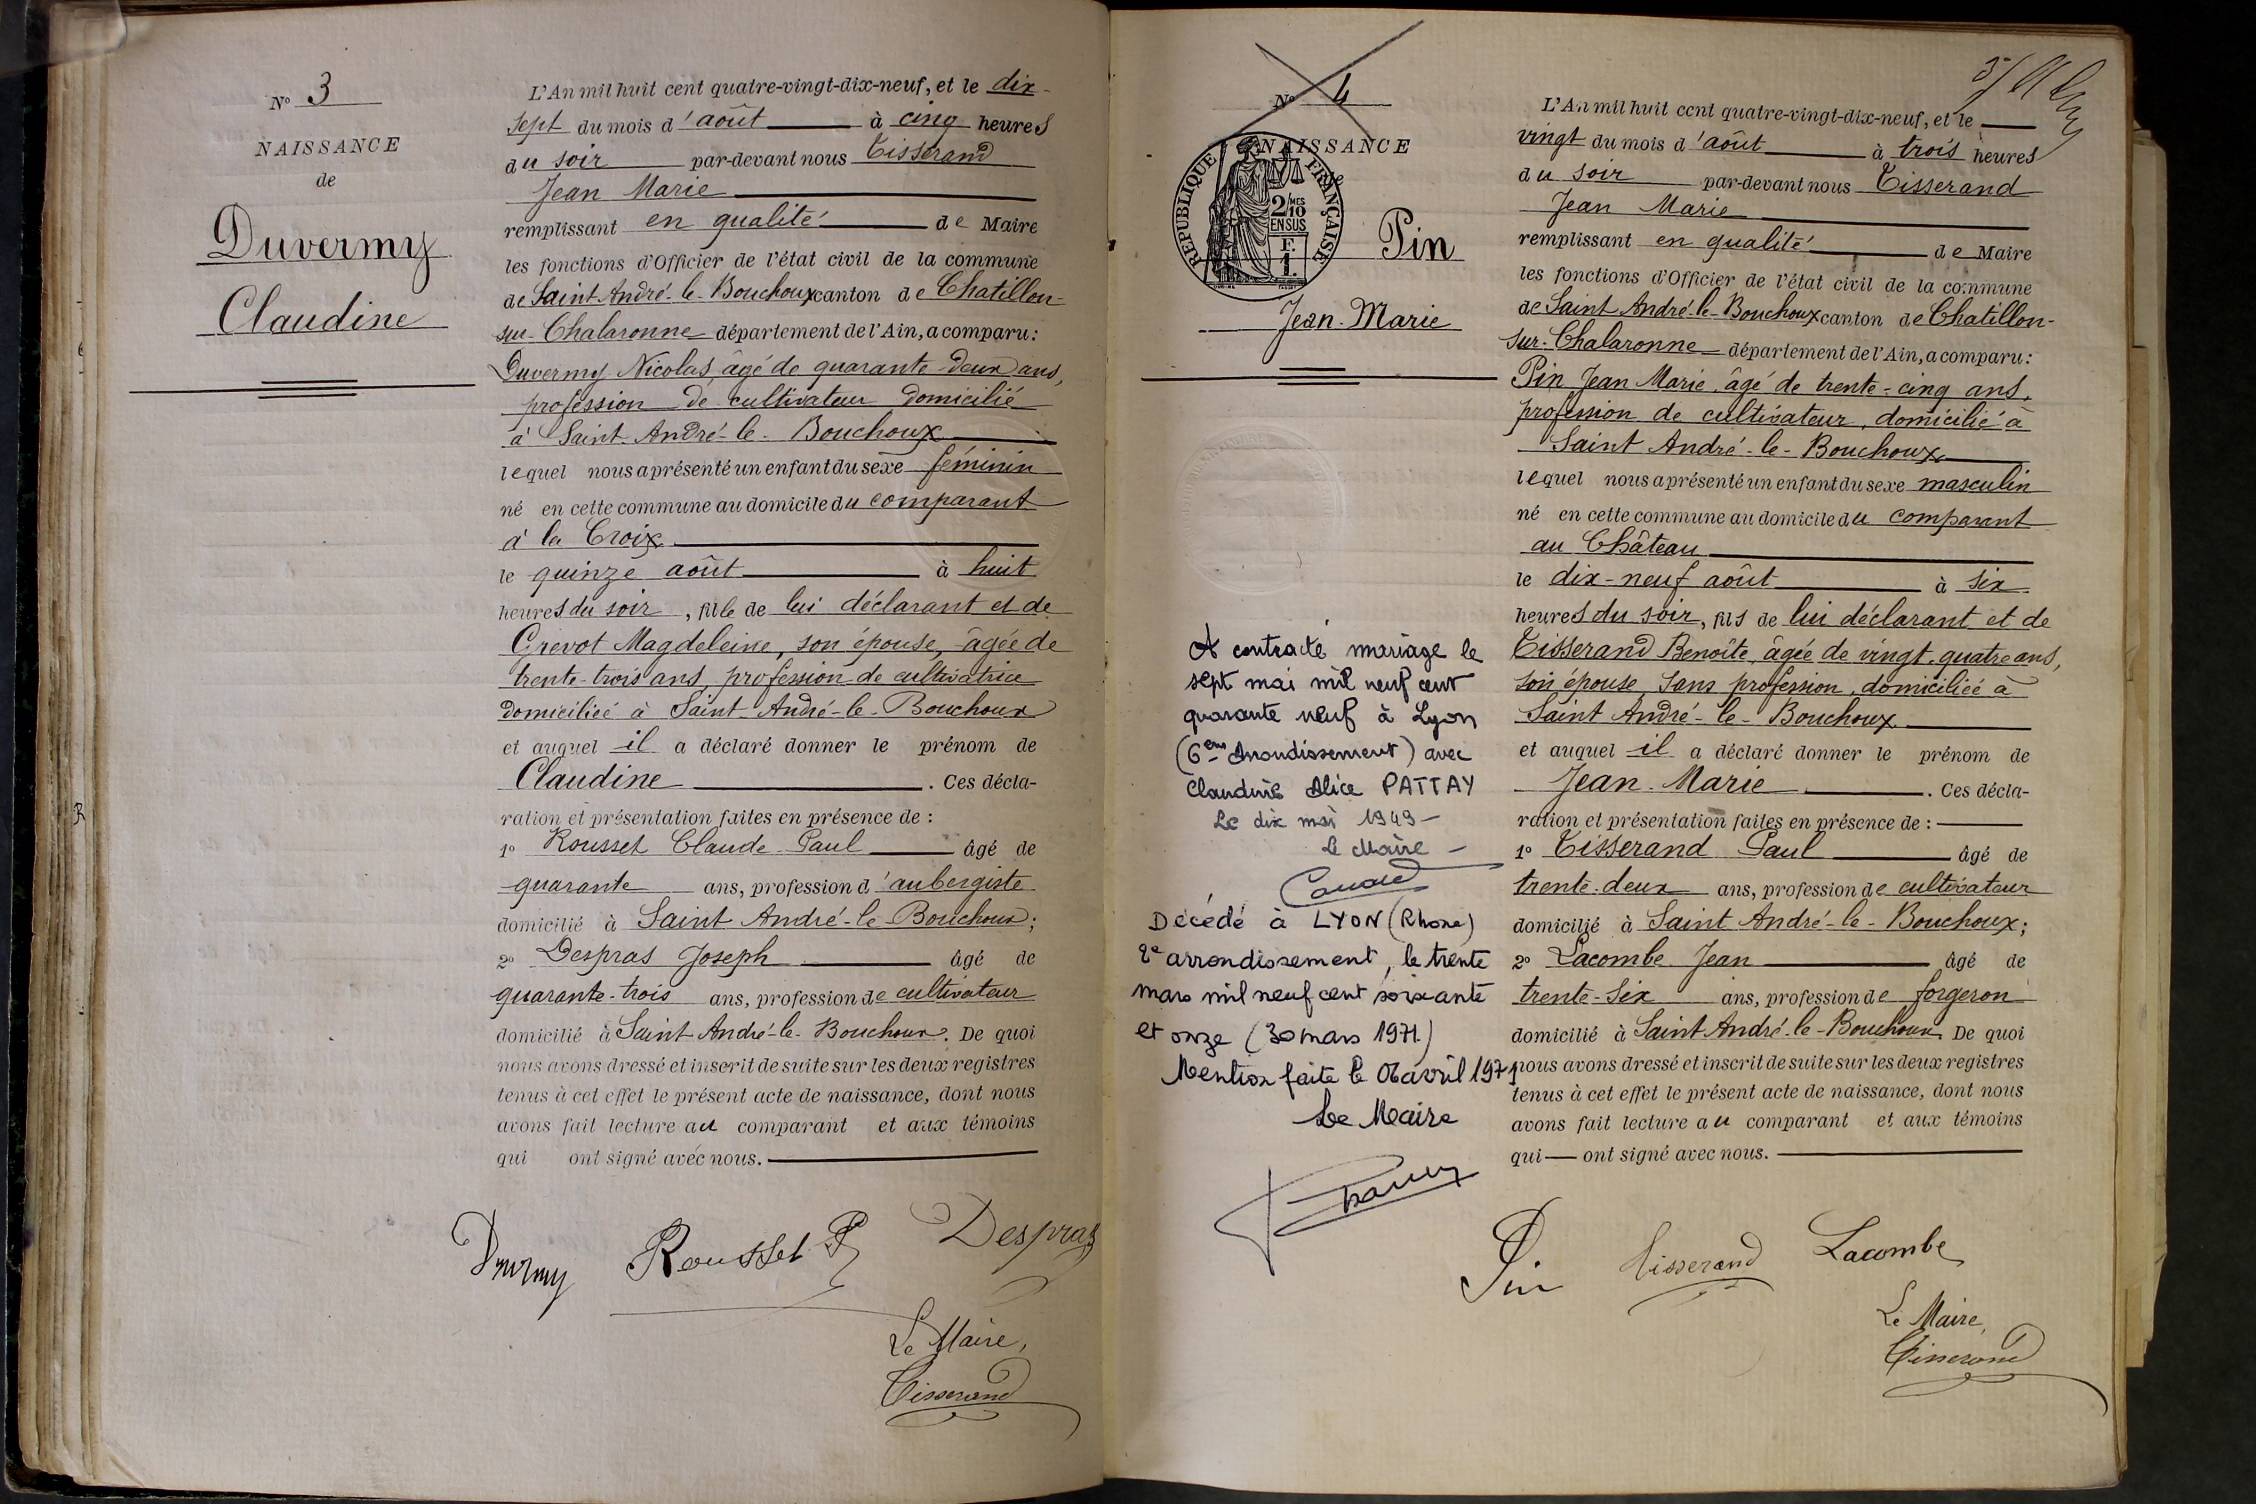 N° 3
NAISSANCE
de
Duvermy
Claudine
L'An mil huit cent quatre-vingt-dix-neuf, et le dix-
sept du mois d'août à cinq heures
du soir par-devant nous Tisserand
Jean Marie
remplissant en qualité de Maire
les fonctions d'Officier de l'état civil de la commune
de Saint André-le-Bouchoux canton de Chatillon-
sur-Chalaronne département de l'Ain, a comparu:
Duvermy Nicolas, âgé de quarante-deux ans,
profession de cultivateur domicilié
à Saint André-le-Bouchoux
lequel nous a présenté un enfant du sexe féminin
né en cette commune au domicile du comparant
à la Croix
le quinze août à huit
heures du soir, fille de lui déclarant et de
Grevot Magdeleine, son épouse, âgée de
trente-trois ans, profession de cultivatrice
domiciliée à Saint-André-le-Bouchoux
et auquel il a déclaré donner le prénom de
Claudine . Ces décla-
ration et présentation faites en présence de :
1° Rousset Claude-Paul âgé de
quarante ans, profession d'aubergiste
domicilié à Saint André-le-Bouchoux;
2° Despras Joseph âgé de
quarante-trois ans, profession de cultivateur
domicilié à Saint André-le-Bouchoux. De quoi
nous avons dressé et inscrit de suite sur les deux registres
tenus à cet effet le présent acte de naissance, dont nous
avons fait lecture au comparant et aux témoins
qui ont signé avec nous.
Duvermy Rousset P Despras
Le Maire,
Tisserand
N° 4
NAISSANCE
de
RÉPUBLIQUE FRANÇAISE
2/10 MES
EN SUS
F.
1.
Pin
Jean-Marie
A contracté mariage le
sept mai mil neuf cent
quarante neuf à Lyon
(6ème Arrondissement) avec
Claudine Alice PATTAY
Le dix mai 1949 -
Le Maire -
Décédé à LYON (Rhone)
2e arrondissement, le trente
mars mil neuf cent soixante
et onze (30 mars 1971)
Mention faite le 06 avril 1971
Le Maire
L'An mil huit cent quatre-vingt-dix-neuf, et le
vingt du mois d'août à trois heures
du soir par-devant nous Tisserand
Jean Marie
remplissant en qualité de Maire
les fonctions d'Officier de l'état civil de la commune
de Saint André-le-Bouchoux canton de Chatillon-
sur-Chalaronne département de l'Ain, a comparu:
Pin Jean Marie, âgé de trente-cinq ans,
profession de cultivateur, domicilié à
Saint André-le-Bouchoux
lequel nous a présenté un enfant du sexe masculin
né en cette commune au domicile du comparant
au Château
le dix-neuf août à six
heures du soir, fils de lui déclarant et de
Tisserand Benoîte, âgée de vingt-quatre ans,
son épouse, sans profession, domiciliée à
Saint André-le-Bouchoux
et auquel il a déclaré donner le prénom de
Jean-Marie . Ces décla-
ration et présentation faites en présence de :
1° Tisserand Paul âgé de
trente-deux ans, profession de cultivateur
domicilié à Saint André-le-Bouchoux;
2° Lacombe Jean âgé de
trente-six ans, profession de forgeron
domicilié à Saint André-le-Bouchoux. De quoi
nous avons dressé et inscrit de suite sur les deux registres
tenus à cet effet le présent acte de naissance, dont nous
avons fait lecture au comparant et aux témoins
qui ont signé avec nous.
Pin Tisserand Lacombe
Le Maire,
Tisserand